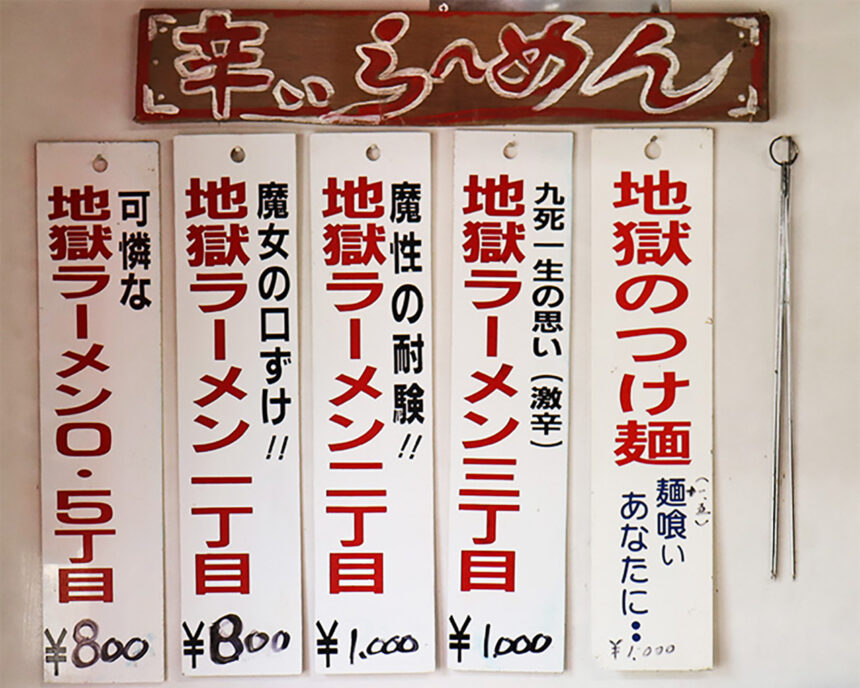 辛いらーめん
地獄のつけ麺
麺喰い
あなたに…
¥1,000
九死一生の思い(激辛)
地獄ラーメン三丁目
¥1,000
魔性の耐験!!
地獄ラーメン二丁目
¥1,000
魔女の口ずけ!!
地獄ラーメン一丁目
¥800
可憐な
地獄ラーメン0・5丁目
¥800